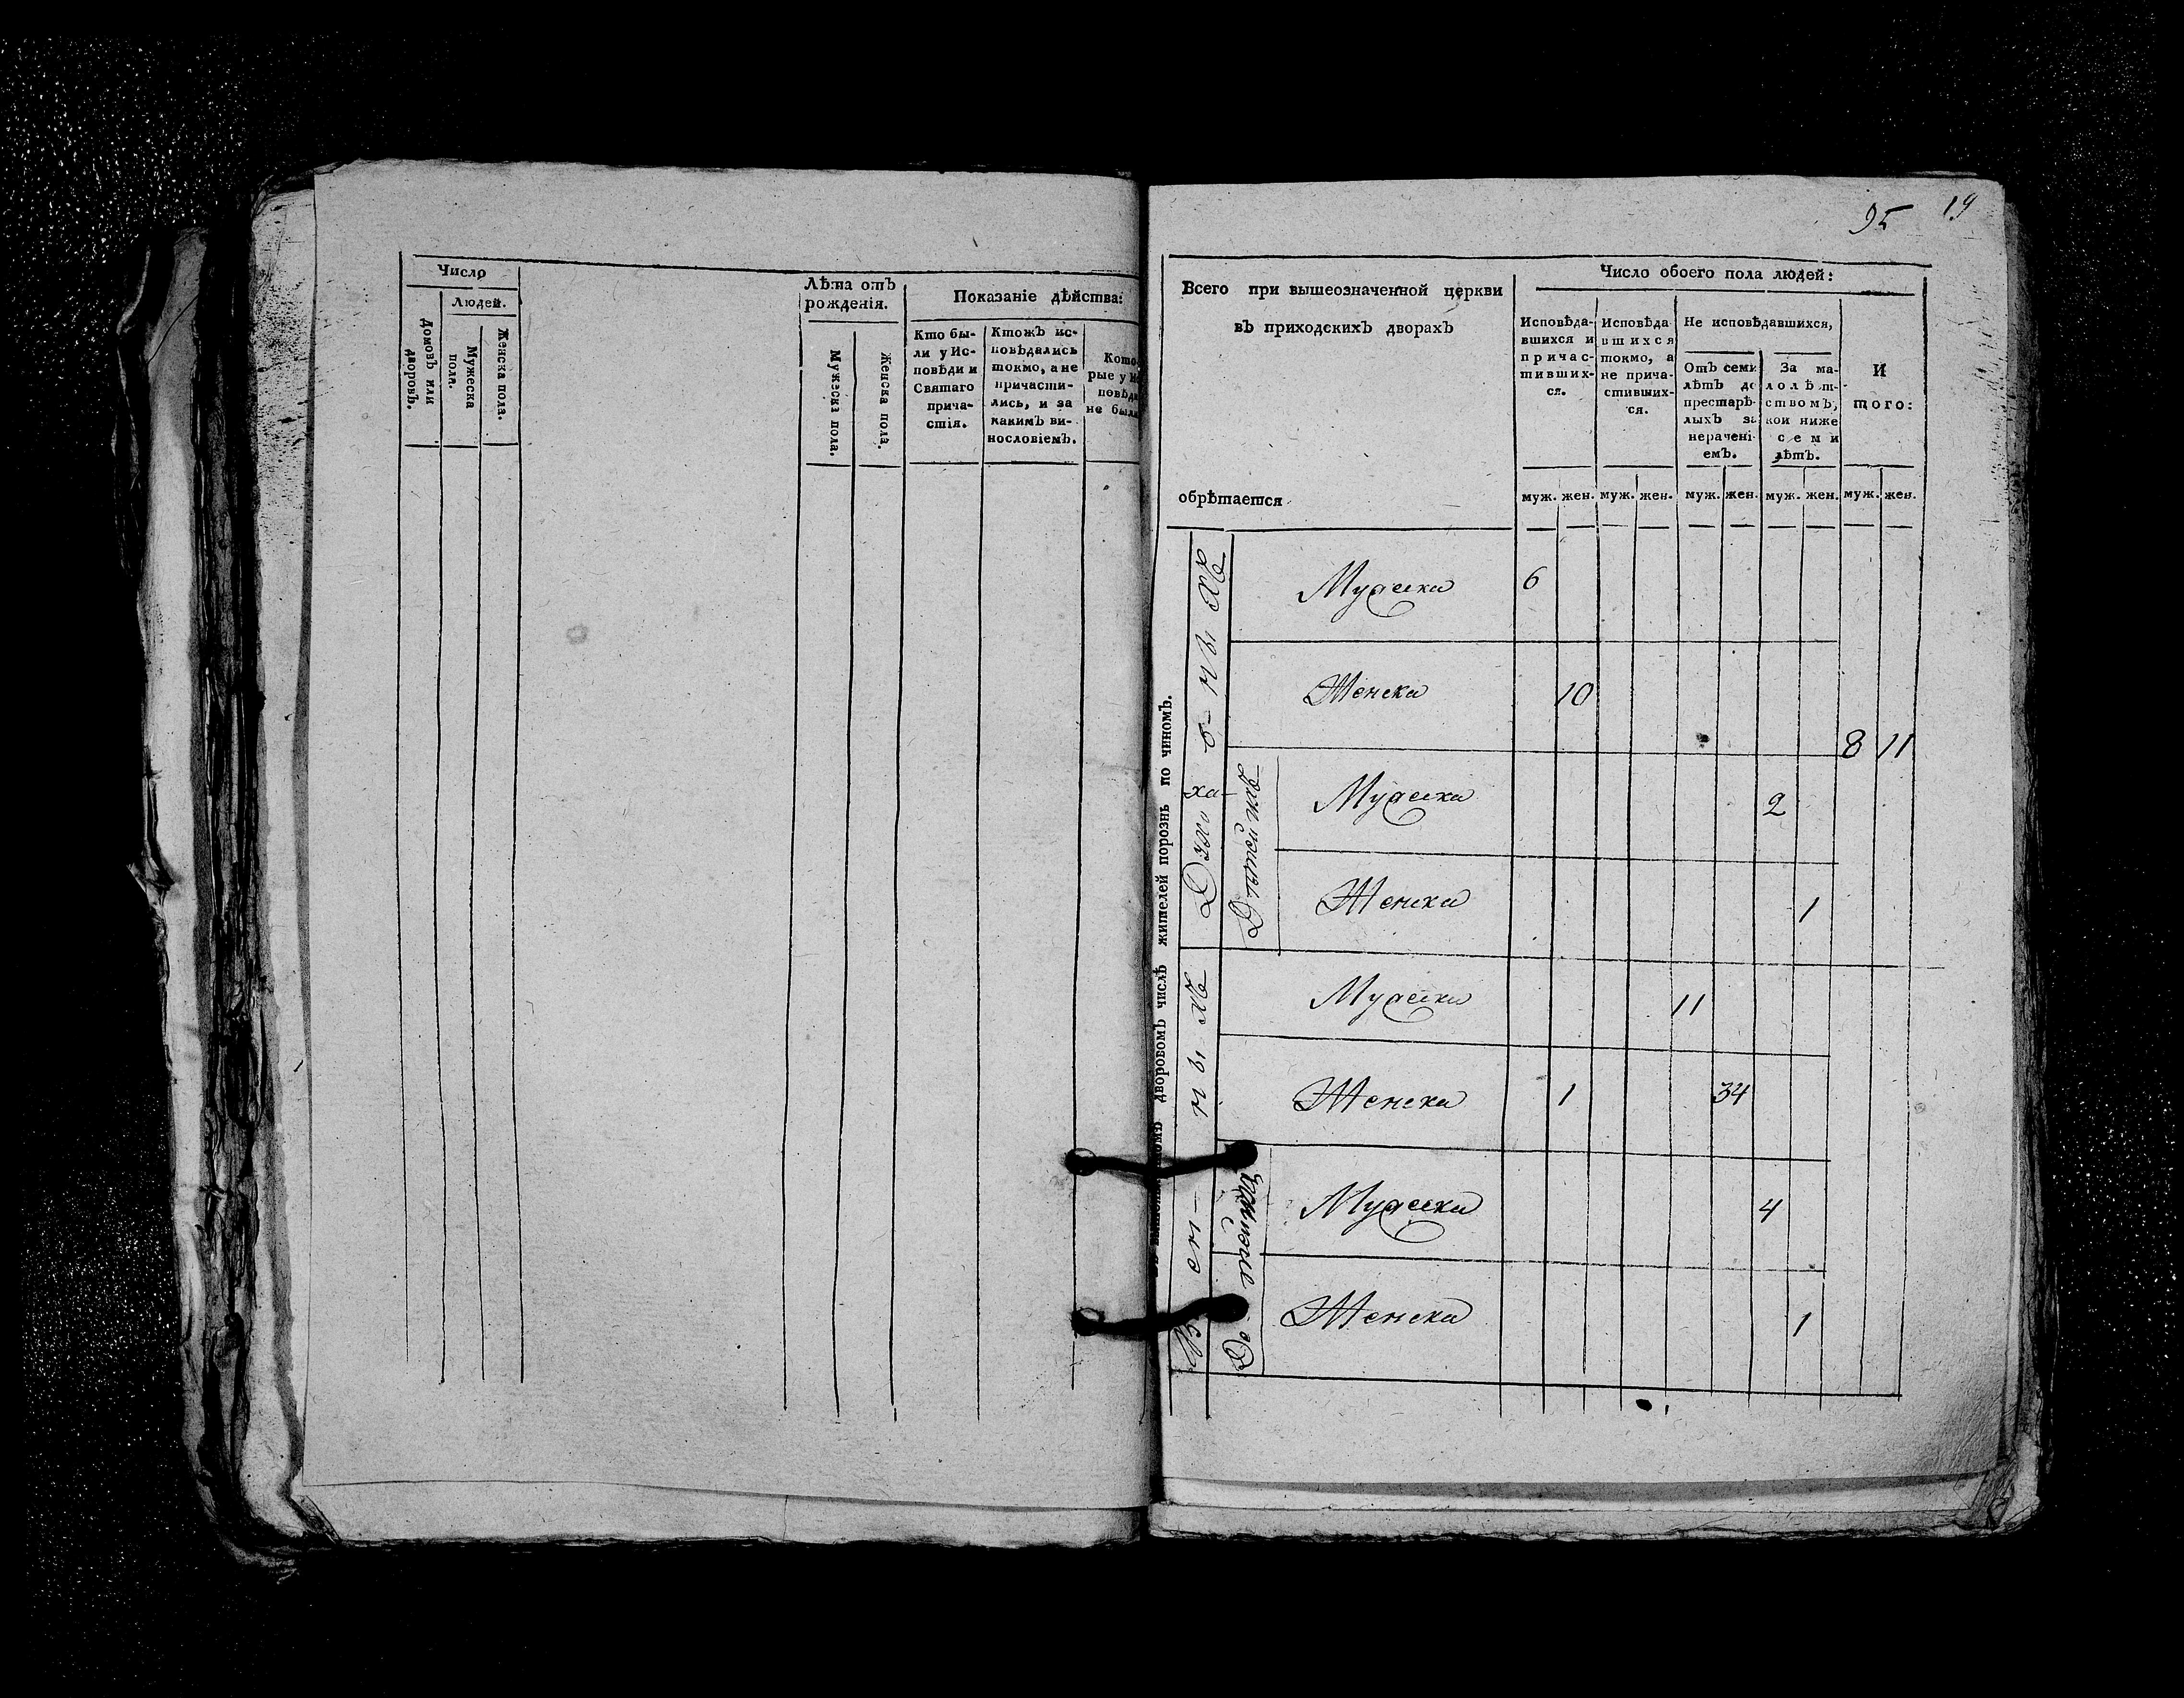 Число
Людей.
Домовъ или дворовъ.
Мужеска пола.
Женска пола.
Лѣта отъ
рожденія.
Мужеска пола.
Женска пола.
Показаніе дѣйства:
Кто бы-
ли у Ис-
повѣди и
Святаго
прича-
стія.
Ктожъ ис-
повѣдались
токмо, а не
причасти-
лись, и за
какимъ ви-
нословіемъ.
Кото-
рые у Ис
повѣди
не были
95 19
Всего при вышеозначенной церкви
въ приходскихъ дворахъ
обрѣтается
Число обоего пола людей:
Исповѣда-
вшихся и
причас-
тивших-
ся.
Исповѣда
вшихся
токмо, а
не прича-
стивших-
ся.
Не исповѣдавшихся,
Отъ семи
лѣтъ до
престарѣ-
лыхъ за
нерачені-
емъ.
За ма-
лолѣт-
ствомъ,
кои ниже
семи
лѣтъ.
И
того:
муж. жен. муж. жен. муж. жен. муж. жен. муж. жен.
дворовомъ числѣ жителей порознь по чиномъ.
Духо в- ны хъ
Мужска 6
Женска 10
8 11
Дѣтей ихъ
Мужска 2
Женска 1
Во ен- ны хъ
Мужска 11
Женска 1 34
Де тей ихъ
Мужска 4
Женска 1